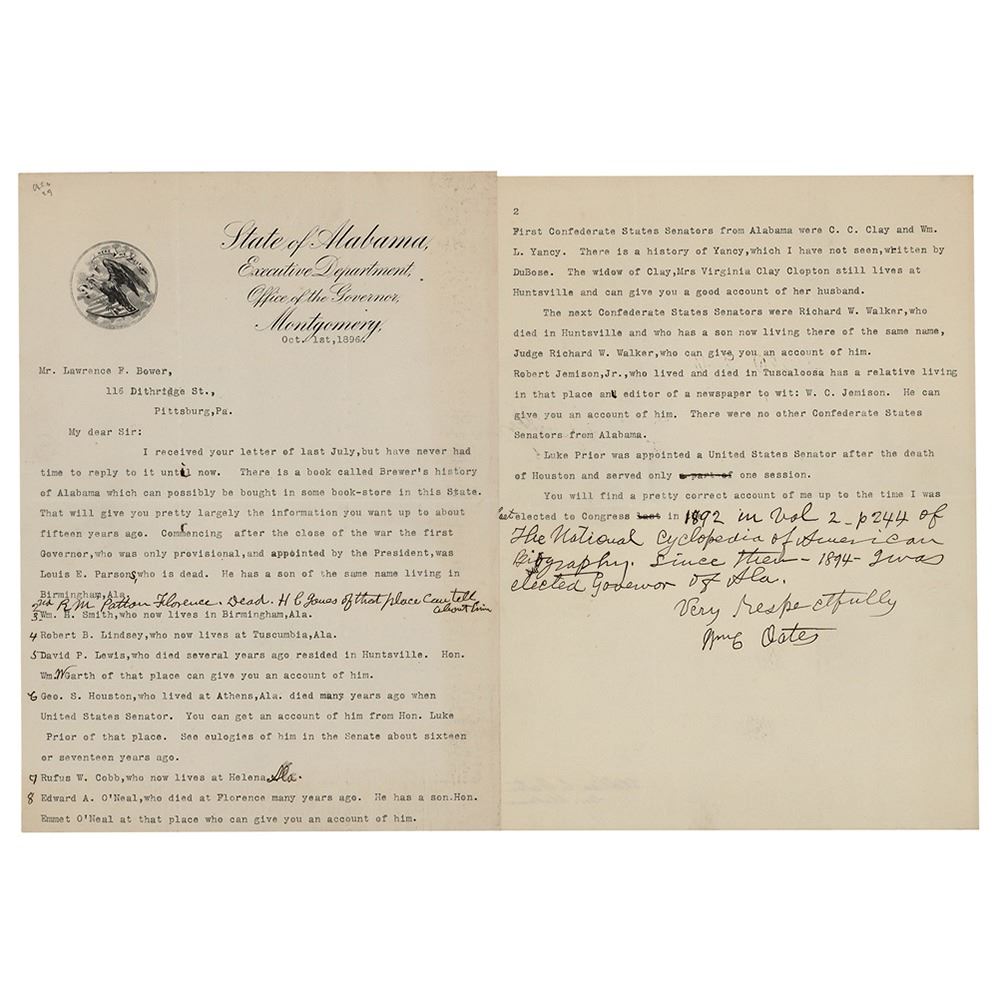 State of Alabama,
Executive Department,
Office of the Governor,
Montgomery,
Oct. 1st, 1896.
Mr. Lawrence F. Bower,
116 Dithridge St.,
Pittsburg,Pa.
My dear Sir:
I received your letter of last July,but have never had
time to reply to it until now. There is a book called Brewer's history
of Alabama which can possibly be bought in some book-store in this State.
That will give you pretty largely the information you want up to about
fifteen years ago. Commencing after the close of the war the first
Governor,who was only provisional,and appointed by the President,was
Louis E. Parsons,who is dead. He has a son of the same name living in
Birmingham,Ala.
2nd R M Patton Florence. Dead. H C Jones of that place can tell
about him
3 Wm. H. Smith,who now lives in Birmingham,Ala.
4 Robert B. Lindsey,who now lives at Tuscumbia,Ala.
5 David P. Lewis,who died several years ago resided in Huntsville. Hon.
Wm.W Garth of that place can give you an account of him.
6 Geo. S. Houston,who lived at Athens,Ala. died many years ago when
United States Senator. You can get an account of him from Hon. Luke
Prior of that place. See eulogies of him in the Senate about sixteen
or seventeen years ago.
7 Rufus W. Cobb,who now lives at Helena Ala.
8 Edward A. O'Neal,who died at Florence many years ago. He has a son.Hon.
Emmet O'Neal at that place who can give you an account of him.
2
First Confederate States Senators from Alabama were C. C. Clay and Wm.
L. Yancy. There is a history of Yancy,which I have not seen,written by
DuBose. The widow of Clay,Mrs Virginia Clay Clopton still lives at
Huntsville and can give you a good account of her husband.
The next Confederate States Senators were Richard W. Walker,who
died in Huntsville and who has a son now living there of the same name,
Judge Richard W. Walker,who can give you an account of him.
Robert Jemison,Jr.,who lived and died in Tuscaloosa has a relative living
in that place and editor of a newspaper to wit: W. C. Jemison. He can
give you an account of him. There were no other Confederate States
Senators from Alabama.
Luke Prior was appointed a United States Senator after the death
of Houston and served only a part of one session.
You will find a pretty correct account of me up to the time I was
last elected to Congress last in 1892 in Vol 2 - p 244 of
The National Cyclopedia of American
Biography. Since then - 1894 - I was
elected Govenor of Ala.
Very respectfully
Wm C Oates